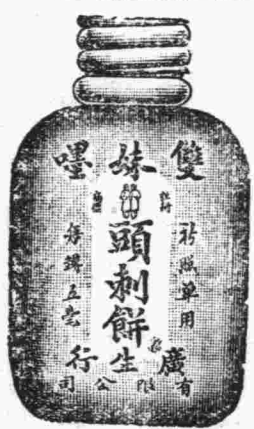 雙妹嚜
頭刺餅
祈照單用
每罇五毫
廣生行
有限公司